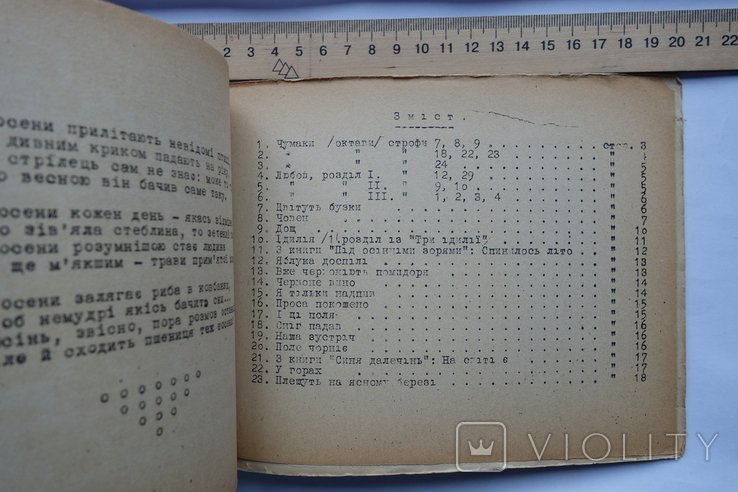 2 3 4 5 6 7 8 9 10 11 12 13 14 15 16 17 18 19 20 21 22
осени прилітають невідомі
дивним криком падають на
стрілець сам не знає: може
весною він бачив саме таку.
осени кожен день - якась
зів'яла стеблина, то
осени розумнішою стає людина
ще м'якшим - трави
осени залягає риба в ковбани,
об немудрі якісь бачить сни...
сінь, звісно, пора розмов
й сходить пшениця теж
Зміст.
1. Чумаки /октави/ строфи 7, 8, 9 . стор. 3
2. " " 18, 22, 23 "
3. " " 24 . " 5
4. Любов, розділ I. " 12, 29 " 5
5. " " II. " 9, 1о "
6. " " III. " 1, 2, 3, 4 "
7. Цвітуть бузки "
8. Човен "
9. Дощ "
1о. Ідилія /1 розділ із "Три ідилії" "
11. З книги "Під осінніми зорями": Спинилось літо " 12
12. Яблука доспілі " 12
13. Вже червоніють помидори " 13
14. Червоне вино " 14
15. Я тільки надпив " 15
16. Проса покошено " 15
17. І ці поля "
18. Сніг падав " 16
19. Наша зустріч " 16
2о. Поле чорніє " 16
21. З книги "Синя далечінь": На світі є " 17
22. У горах " 17
23. Плещуть на ясному березі " 18
VIOLITY